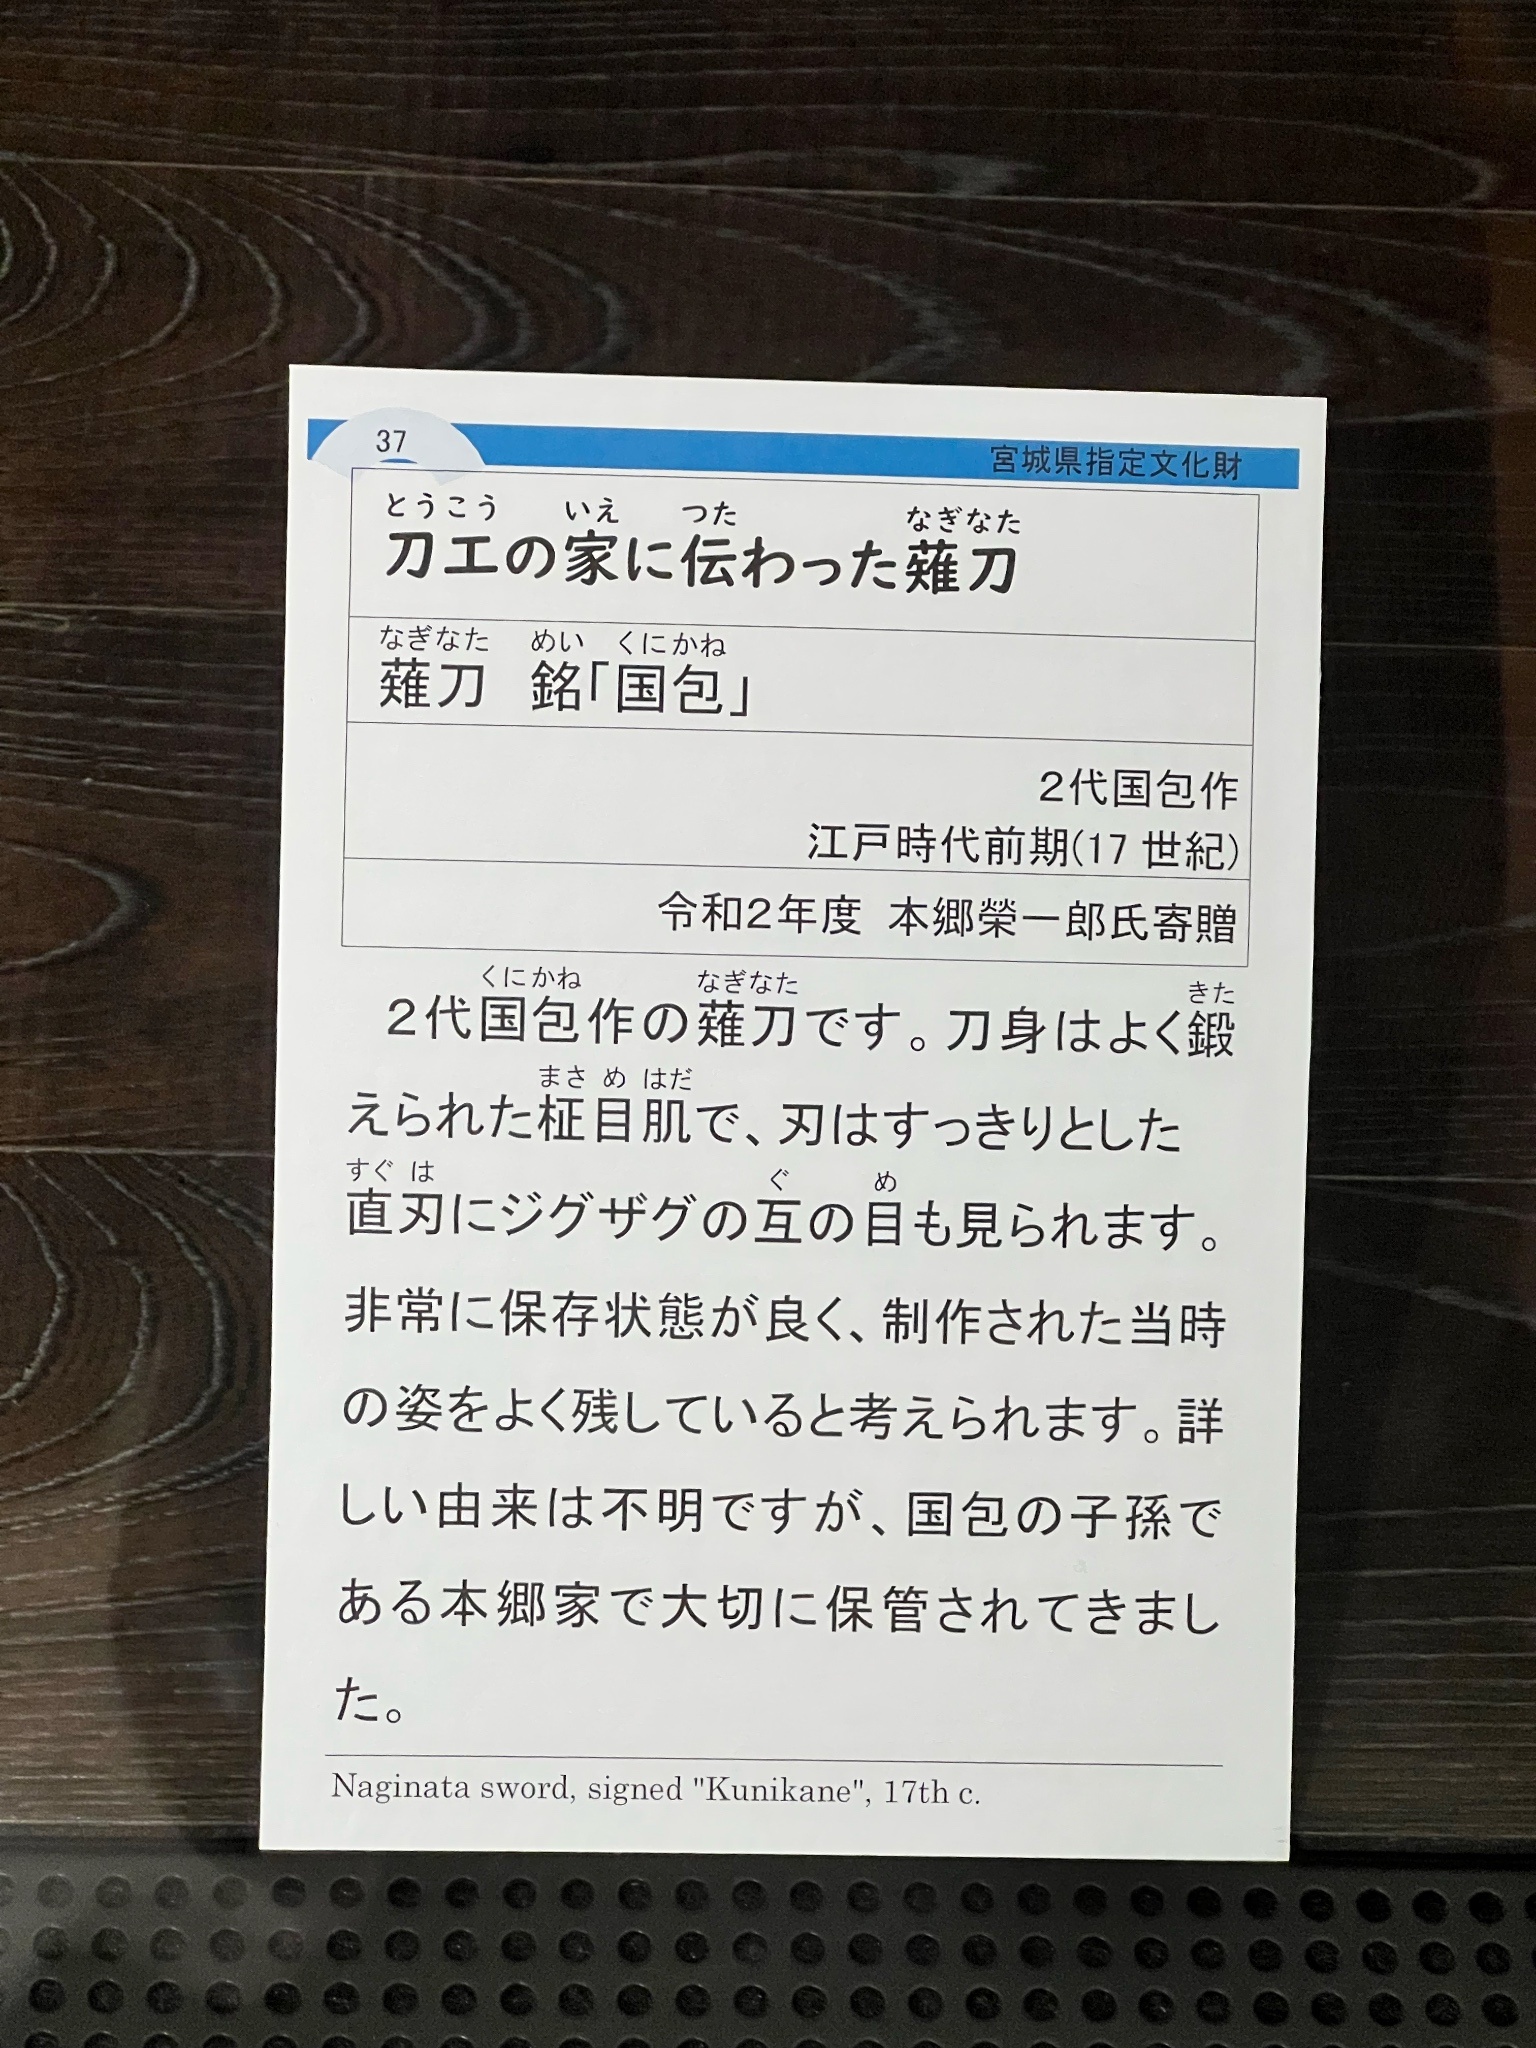 37
宮城県指定文化財
とうこう いえ つた なぎなた
刀工の家に伝わった薙刀
なぎなた めい くにかね
薙刀 銘「国包」
2代国包作
江戸時代前期(17 世紀)
令和2年度 本郷榮一郎氏寄贈
くにかね なぎなた きた
2代国包作の薙刀です。刀身はよく鍛
まさ め はだ
えられた柾目肌で、刃はすっきりとした
すぐ は ぐ め
直刃にジグザグの互の目も見られます。
非常に保存状態が良く、制作された当時
の姿をよく残していると考えられます。詳
しい由来は不明ですが、国包の子孫で
ある本郷家で大切に保管されてきまし
た。
Naginata sword, signed "Kunikane", 17th c.